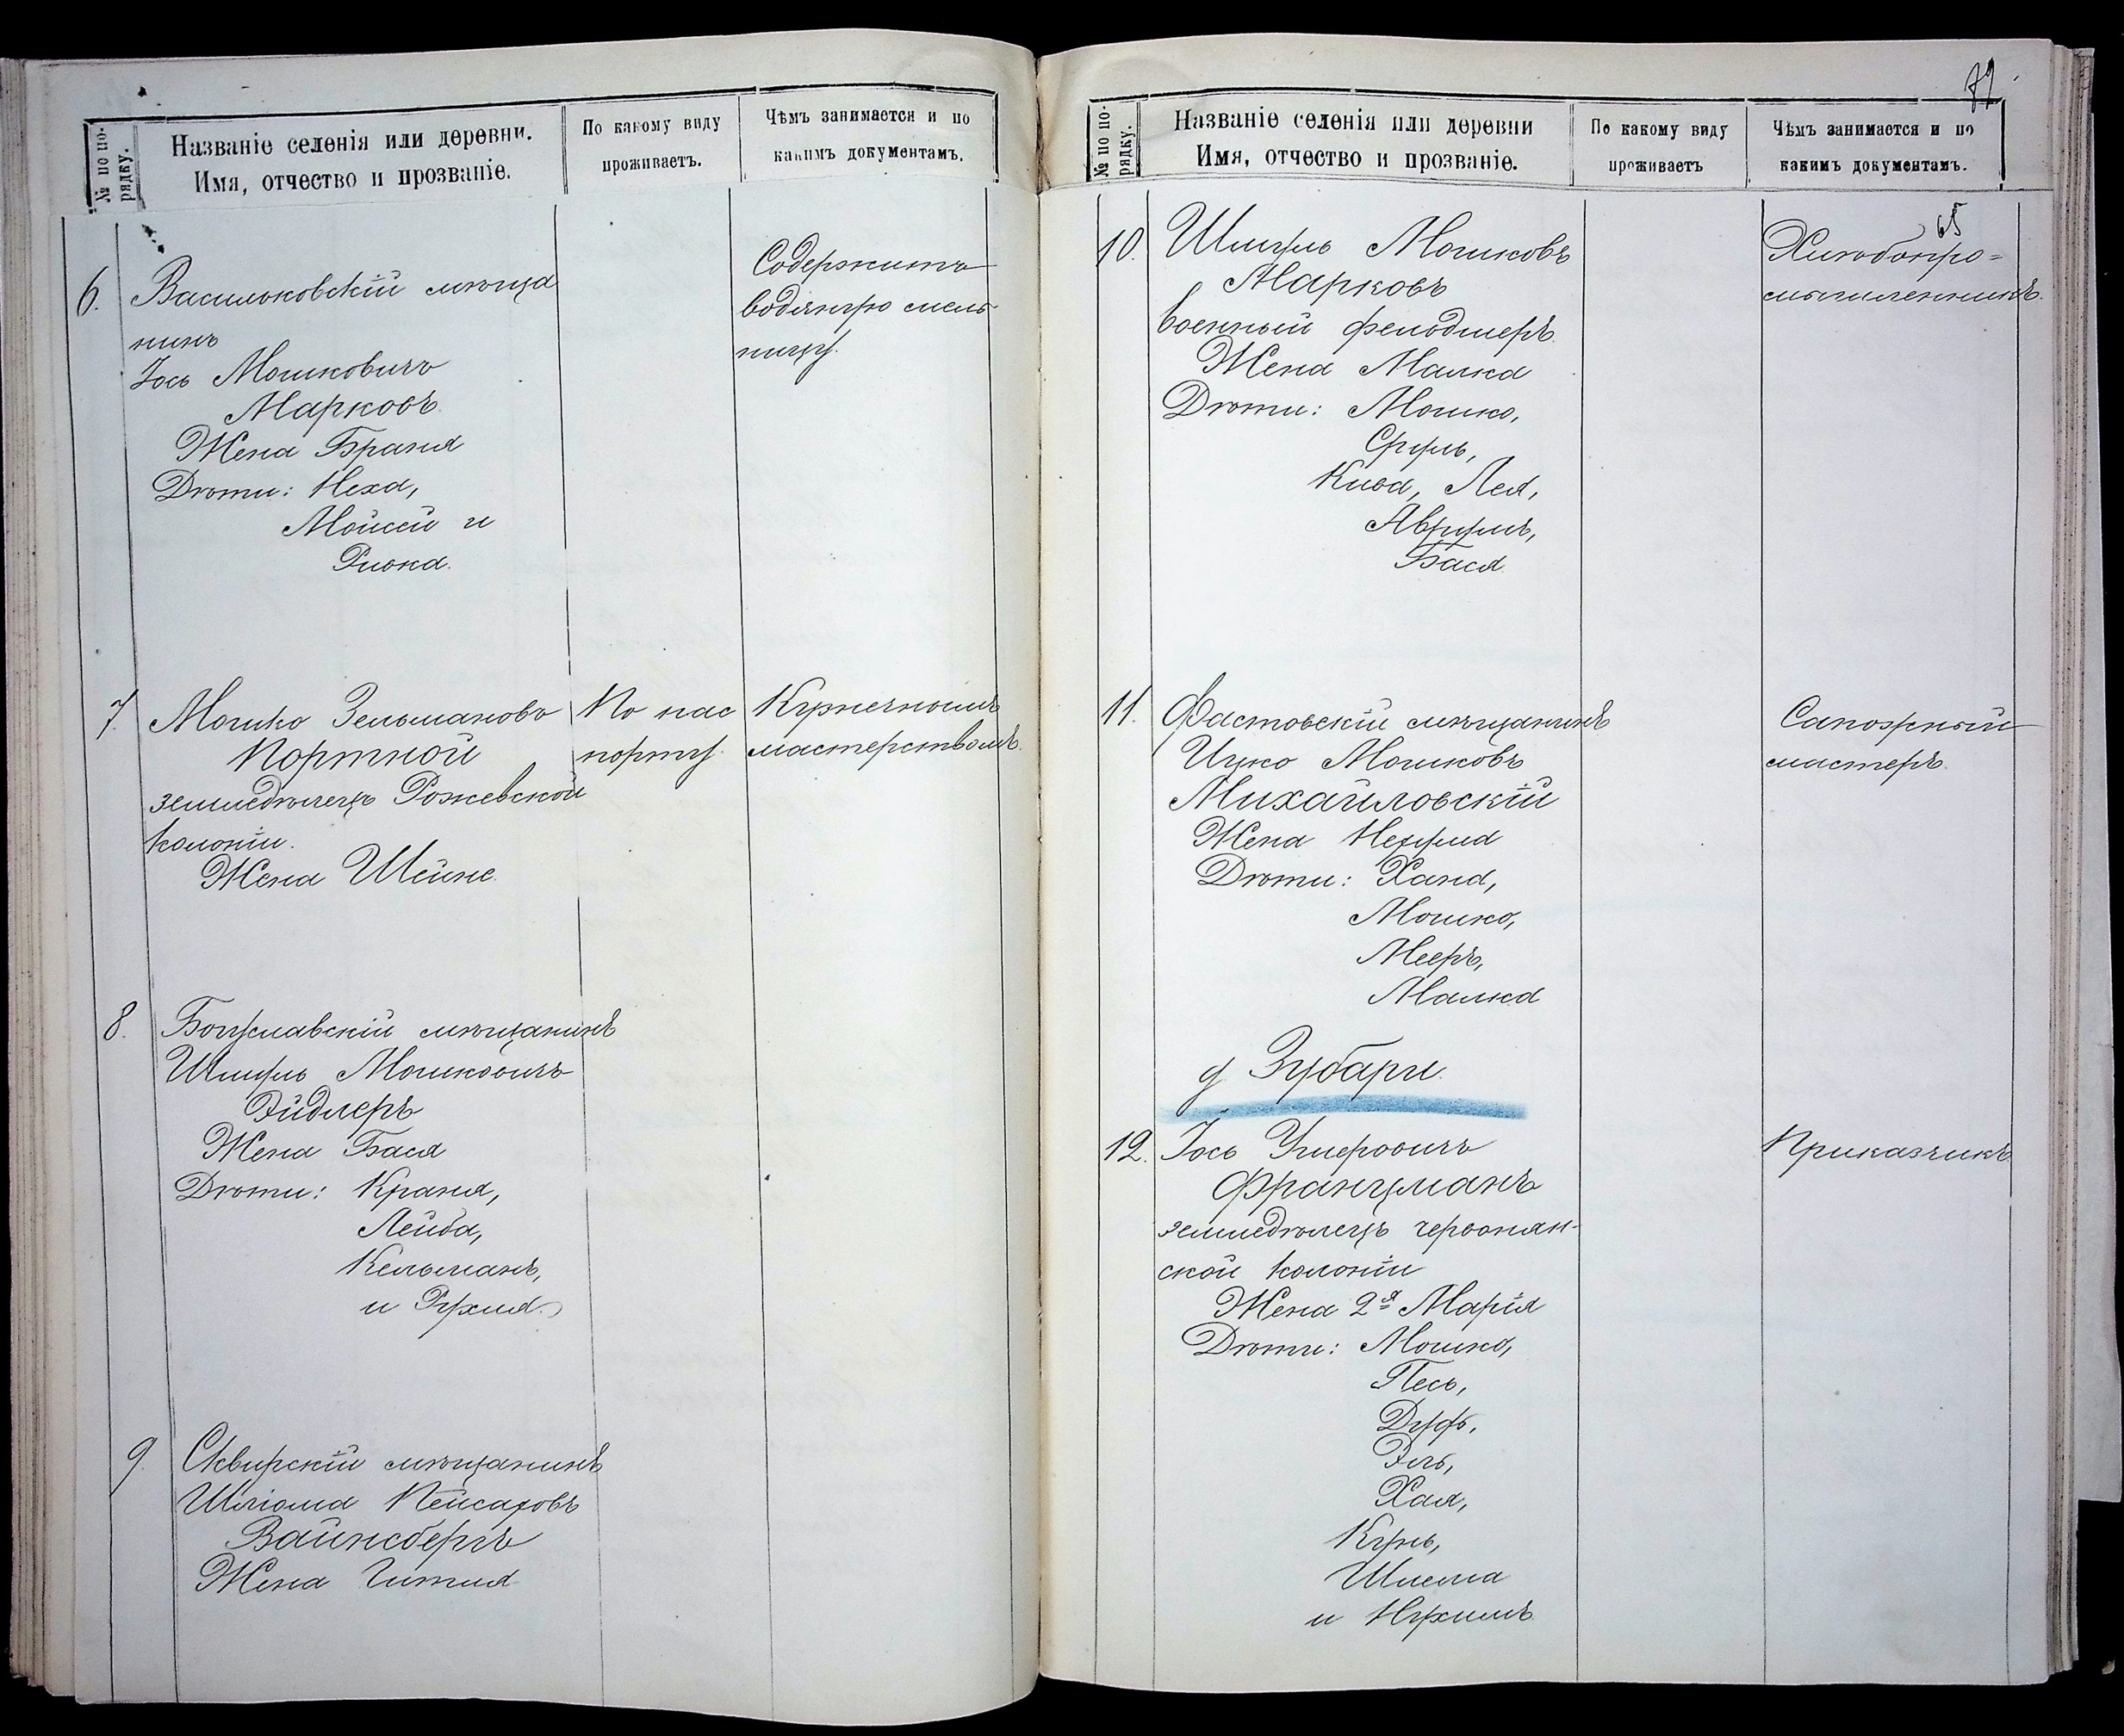 № по по-
рядку.
Названіе селенія или деревни.
Имя, отчество и прозваніе.
По какому виду
проживаетъ.
Чѣмъ занимается и по
какимъ документамъ.
6. Васильковскій мѣща
нинъ
Іось Мошковичъ
Марковъ
Жена Браня
Дѣти: Неха,
Мойсей и
Ривка.
Содержитъ
водяную мель-
ницу.
7. Мошко Зельмановъ
Портной
земледѣлецъ Рожевской
колоніи.
Жена Шейне
По пас
порту.
Кузнечнымъ
мастерствомъ.
8. Богуславскій мѣщанинъ
Шмуль Мошковичъ
Эйдлеръ
Жена Бася
Дѣти: Краня,
Лейба,
Кельманъ,
и Рухля.
9. Сквирскій мѣщанинъ
Шліома Пейсаховъ
Вайнсбергъ
Жена Гитля
71
№ по по-
рядку.
Названіе селенія или деревни
Имя, отчество и прозваніе.
По какому виду
проживаетъ
Чѣмъ занимается и по
какимъ документамъ.
65
10. Шмуль Мошковъ
Марковъ
военный фельдшеръ
Жена Малка
Дѣти: Мошко,
Сруль,
Кива, Лея,
Аврумъ,
Бася
Хлѣбопро=
мышленникъ.
11. Фастовскій мѣщанинъ
Ицко Мошковъ
Михайловскій
Жена Нехума
Дѣти: Хана,
Мошко,
Мееръ,
Малка
Сапожный
мастеръ.
д Зубари.
12. Іось Умеровичъ
Францманъ
земледѣлецъ червонян-
ской колоніи
Жена 2я Марія
Дѣти: Мошко,
Песь,
Эль,
Хая,
Кунь,
Шлема
и Нухимъ.
Приказчикъ